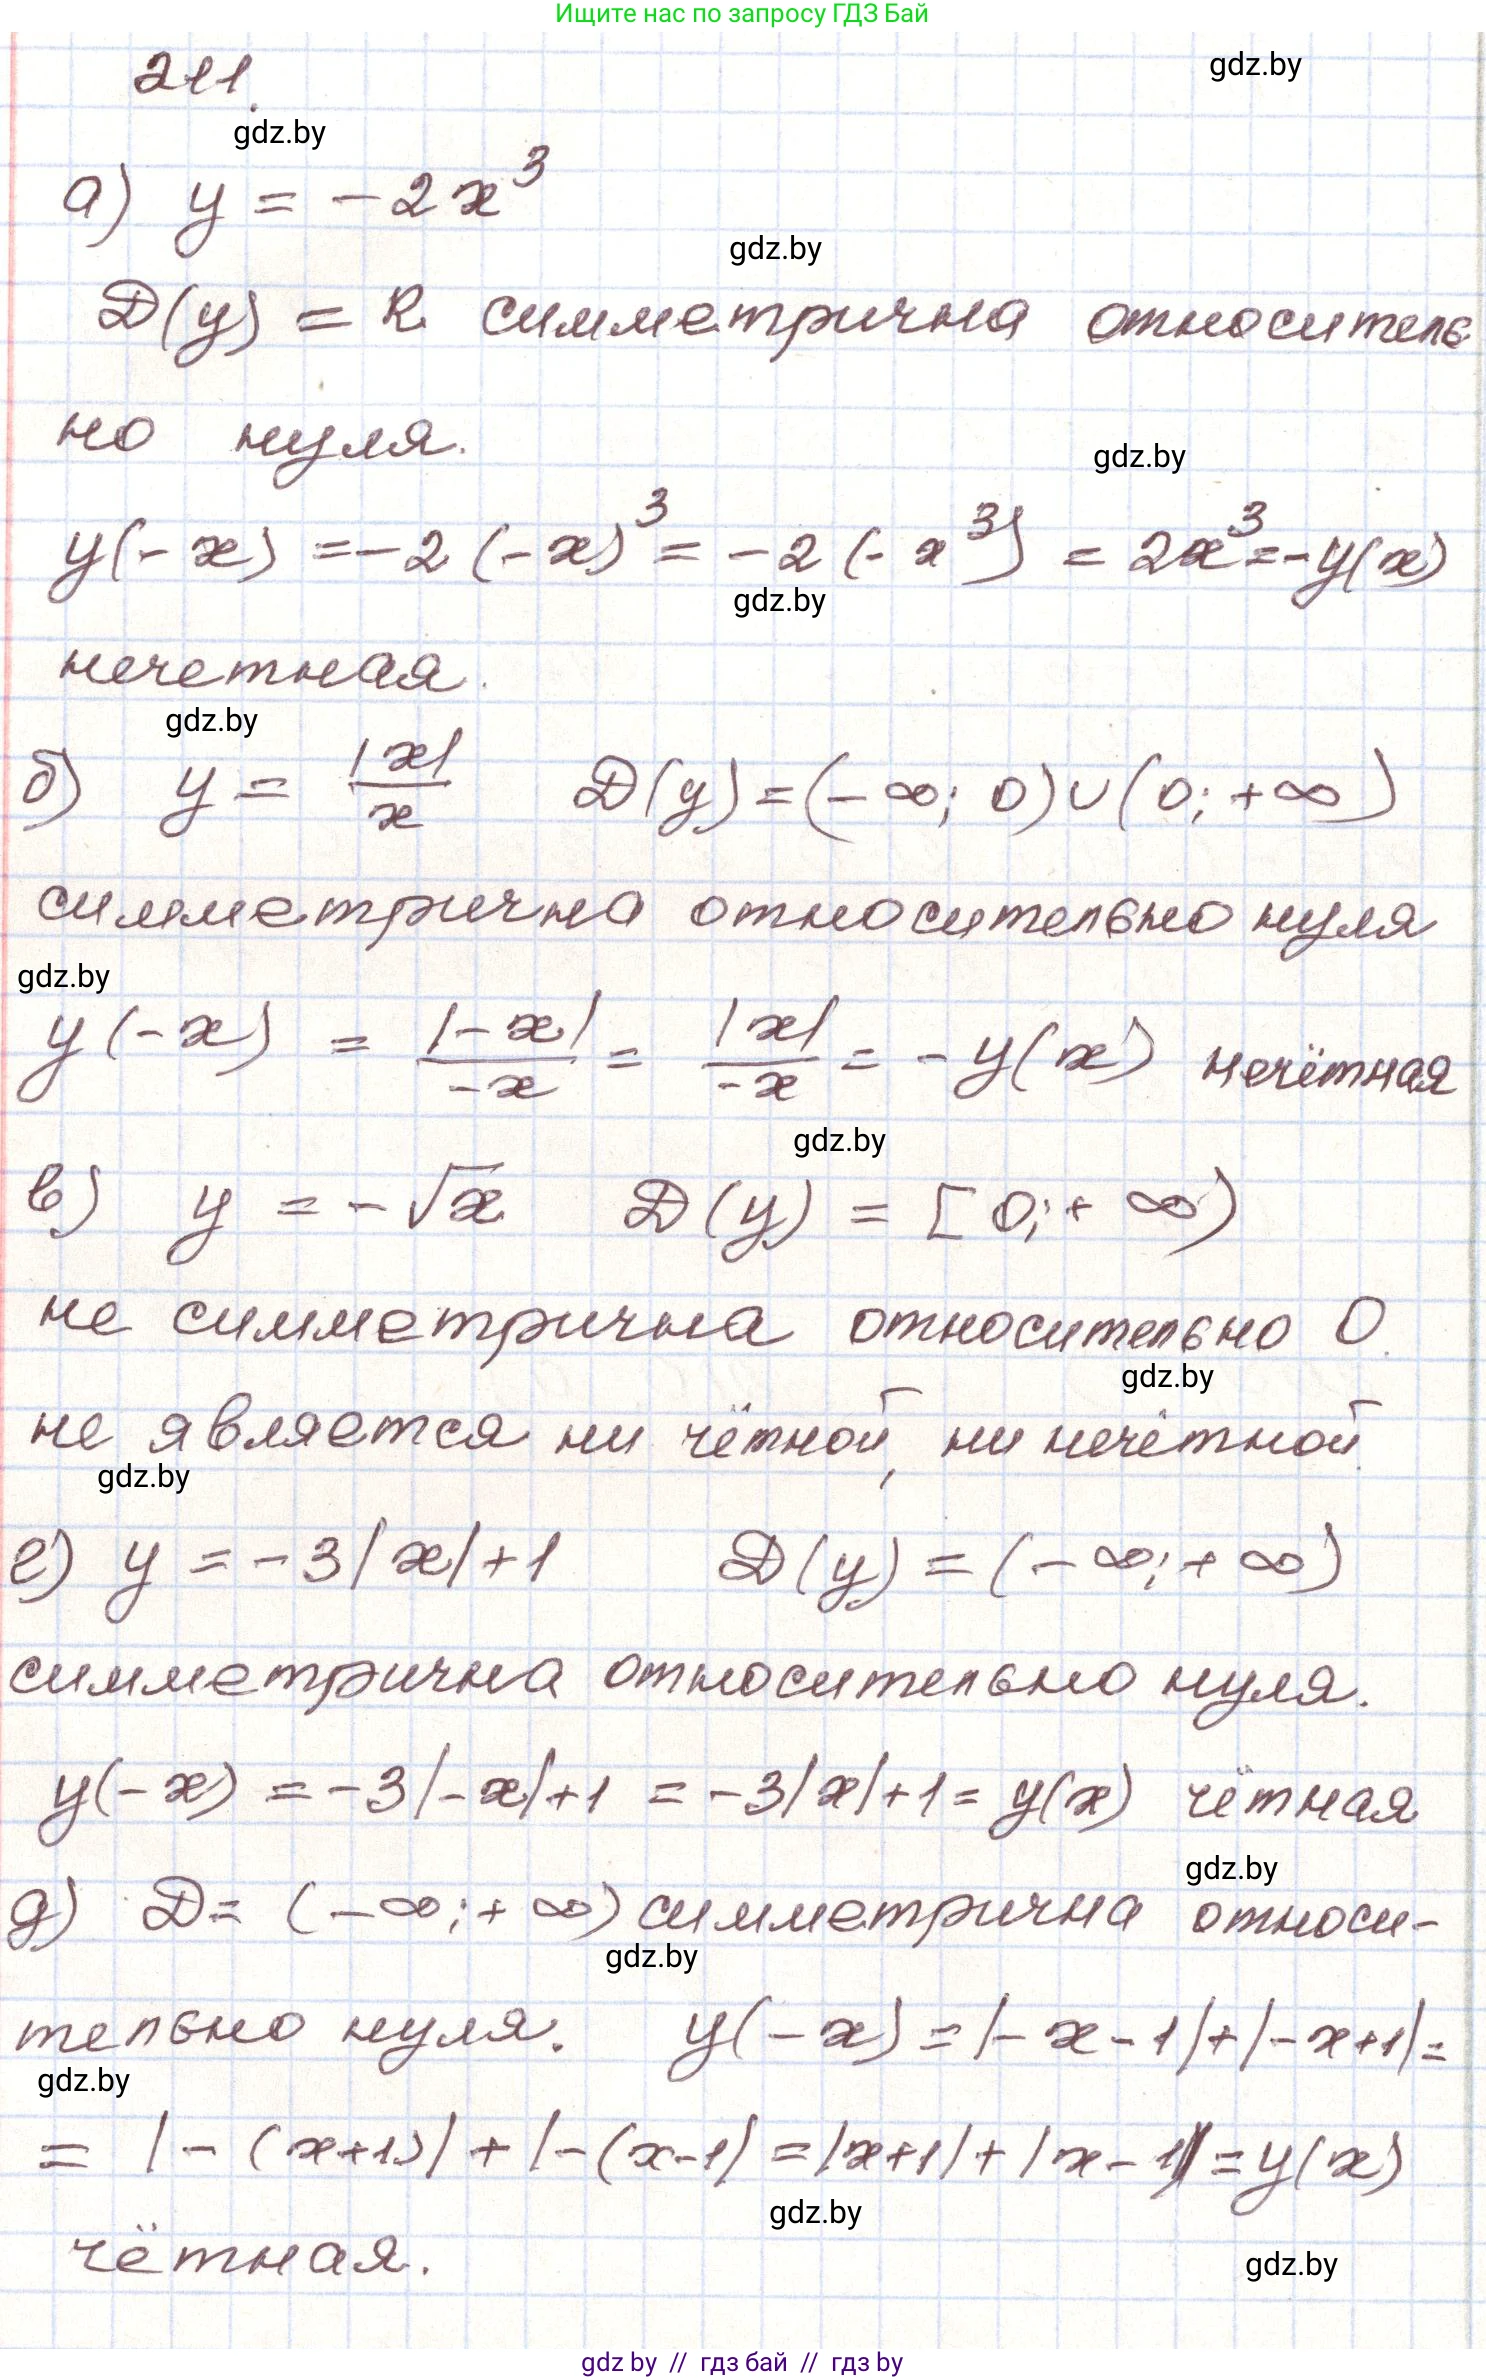 Ищите нас по запросу ГДЗ Бай
211.
gdz.by
gdz.by
а) y = -2x³
gdz.by
D(y) = R симметрична относитель
но нуля.
gdz.by
y(-x) = -2(-x)³ = -2(-x³) = 2x³ = -y(x)
gdz.by
нечетная.
gdz.by
б) y = |x|/x D(y) = (-∞; 0)∪(0; +∞)
симметрична относительно нуля
gdz.by
y(-x) = |-x|/-x = |x|/-x = -y(x) нечётная
gdz.by
в) y = -√x D(y) = [0; +∞)
не симметрична относительно 0.
gdz.by
не является ни чётной, ни нечётной.
gdz.by
е) y = -3|x|+1 D(y) = (-∞; +∞)
симметрична относительно нуля.
y(-x) = -3|-x|+1 = -3|x|+1 = y(x) чётная
gdz.by
д) D = (-∞; +∞) симметрична относи-
gdz.by
тельно нуля. y(-x) = |-x-1|+|-x+1| =
gdz.by
= |-(x+1)| + |-(x-1| = |x+1| + |x-1| = y(x)
gdz.by
чётная.
gdz.by
gdz.by // гдз бай // гдз by